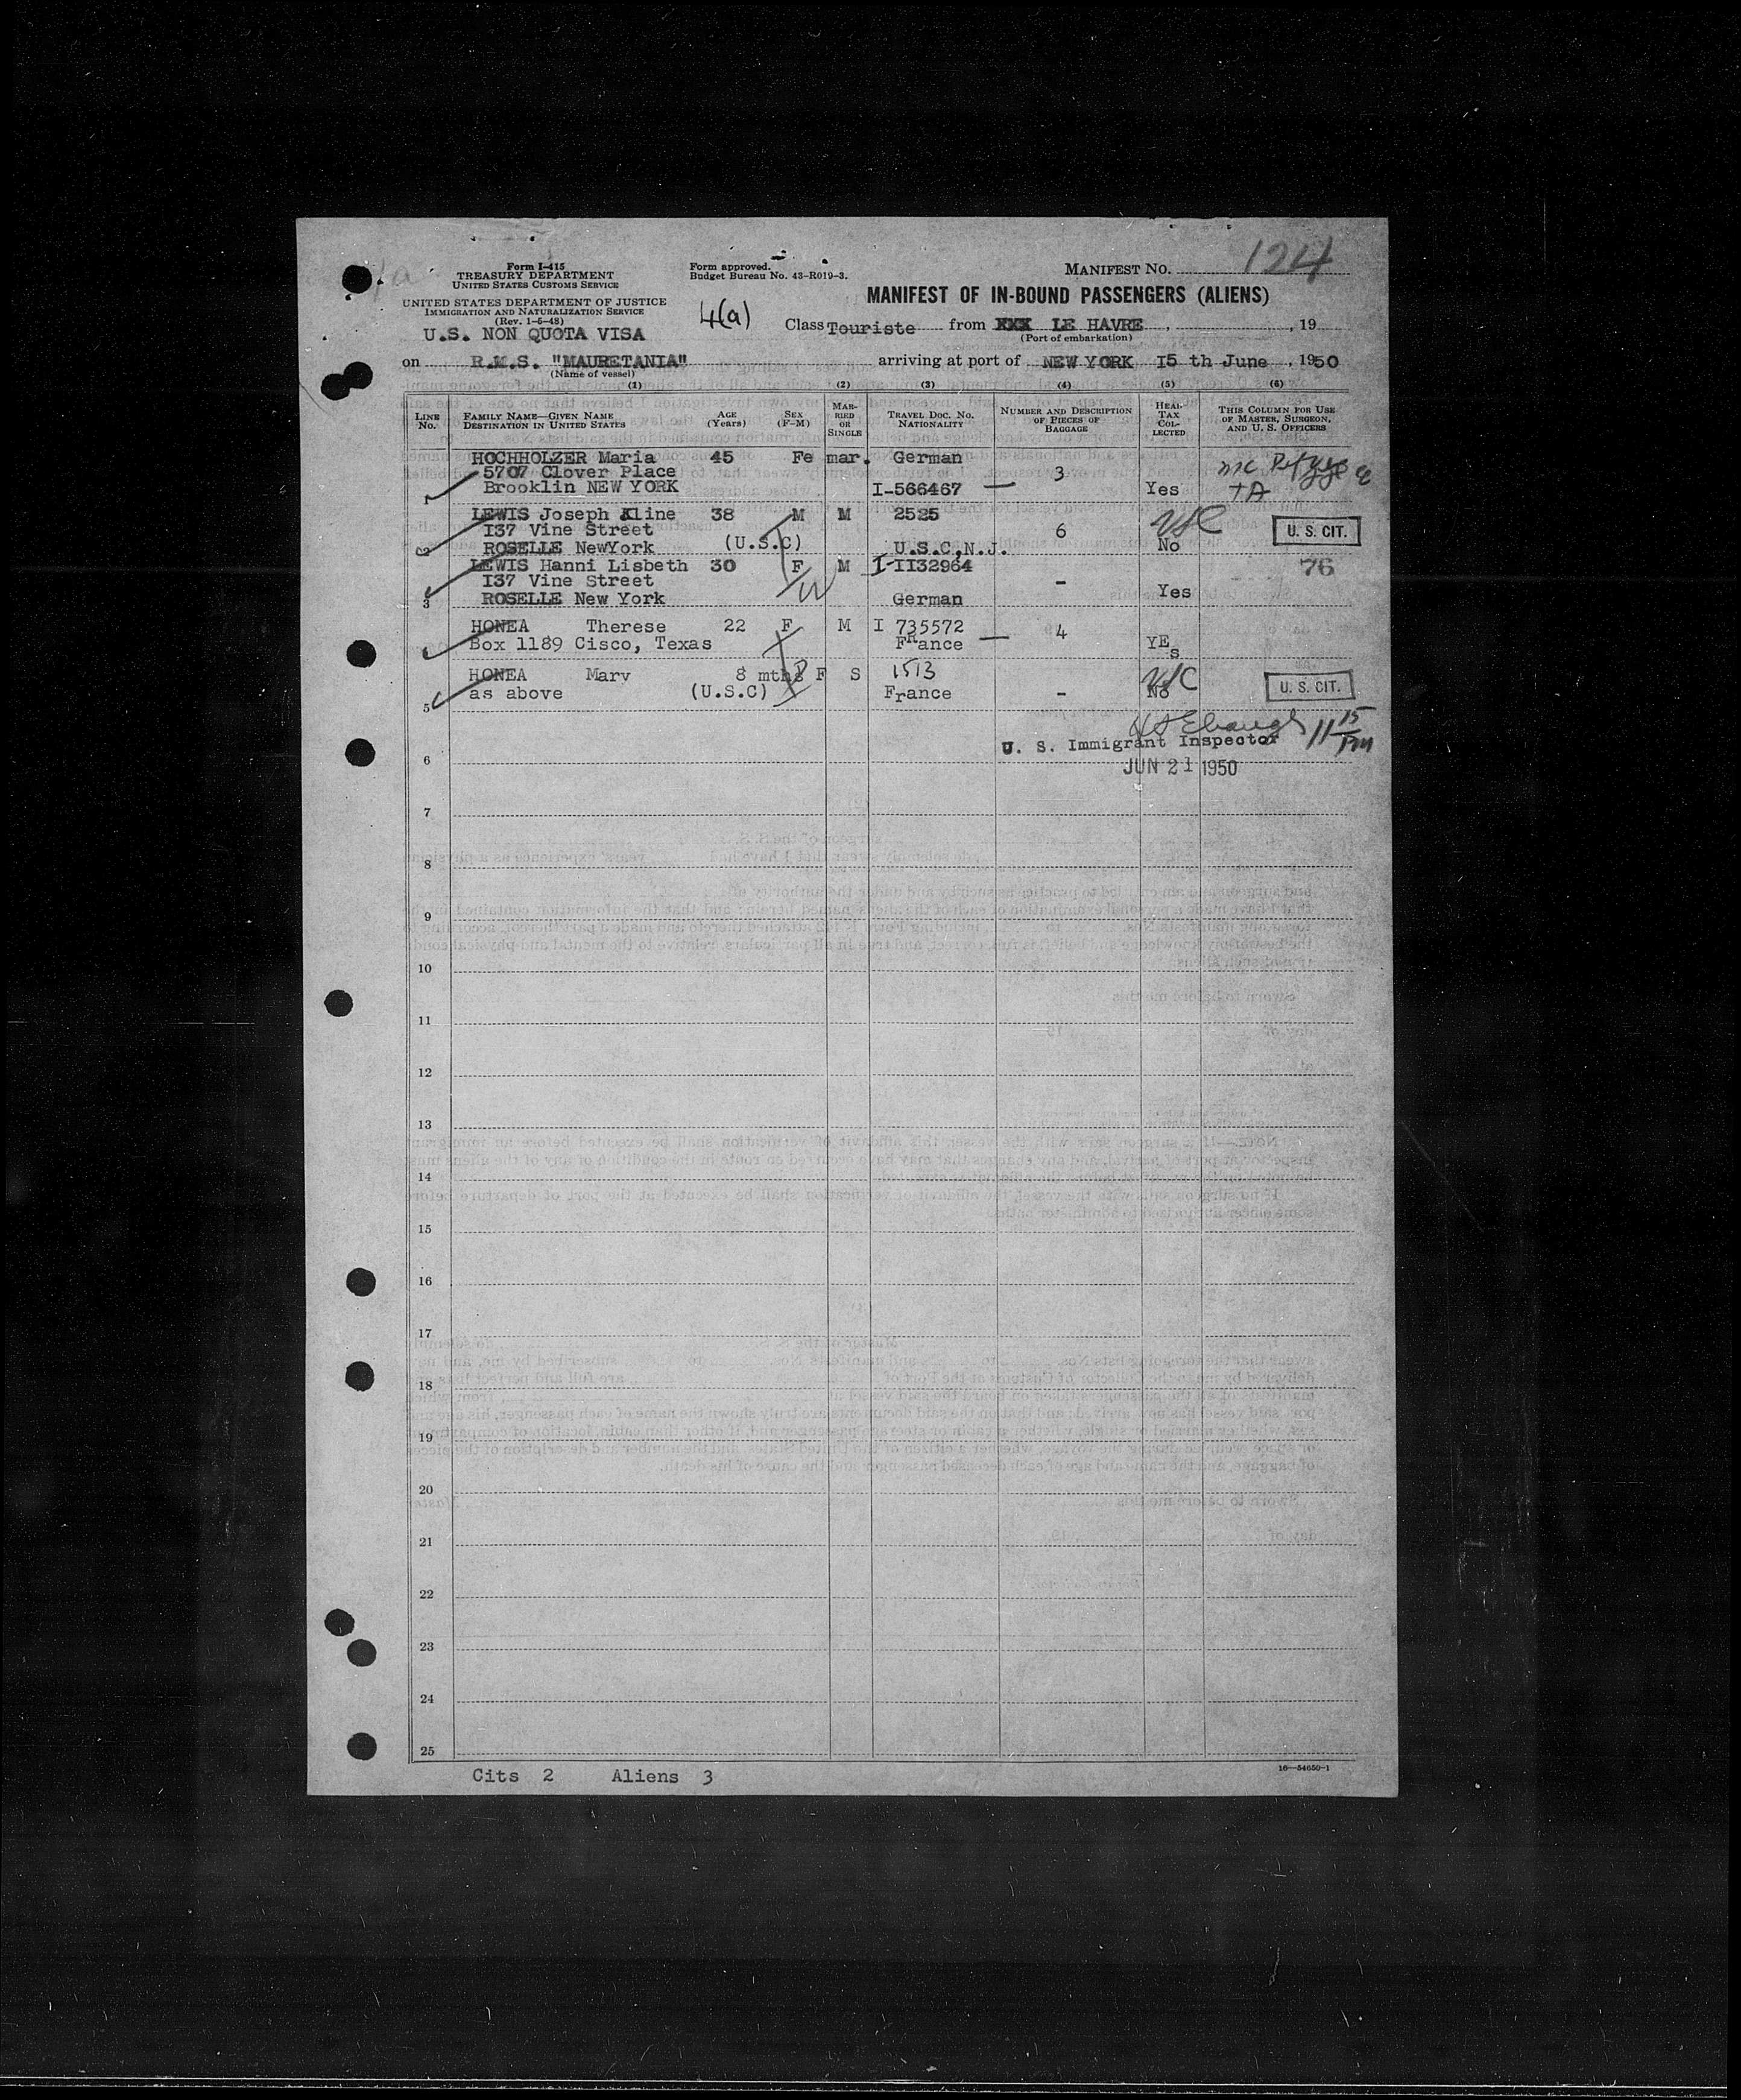 Form I-415
TREASURY DEPARTMENT
UNITED STATES CUSTOMS SERVICE
UNITED STATES DEPARTMENT OF JUSTICE
IMMIGRATION AND NATURALIZATION SERVICE
(Rev. 1-6-48)
U.S. NON QUOTA VISA
Form approved.
Budget Bureau No. 43-R019-3.
4(a)
MANIFEST NO. 124
MANIFEST OF IN-BOUND PASSENGERS (ALIENS)
Class Touriste from XXX LE HAVRE, , 19
(Port of embarkation)
on R.M.S. "MAURETANIA" arriving at port of NEW YORK I5 th June , 1950
(Name of vessel)
(1) (2) (3) (4) (5) (6)
LINE No. FAMILY NAME—GIVEN NAME DESTINATION IN UNITED STATES AGE (Years) SEX (F-M) MARRIED OR SINGLE TRAVEL DOC. NO. NATIONALITY NUMBER AND DESCRIPTION OF PIECES OF BAGGAGE HEAD TAX COLLECTED THIS COLUMN FOR USE OF MASTER, SURGEON, AND U. S. OFFICERS
HOCHHOLZER Maria 45 Fe mar. German
5707 Clover Place 3
1 Brooklin NEW YORK I-566467 — Yes
LEWIS Joseph Kline 38 M M 2525 USC
I37 Vine Street 6 U. S. CIT.
2 ROSELLE NewYork (U.S.C) U.S.C,N.J. No
LEWIS Hanni Lisbeth 30 F M I-II32964 76
I37 Vine Street -
3 ROSELLE New York German Yes
HONEA Therese 22 F M I 735572 4
Box 1189 Cisco, Texas France — YEs
HONEA Mary 8 mths F S 1513 USC
as above (U.S.C) France - No U. S. CIT.
5
U. S. Immigrant Inspector 11 15 PM
6
JUN 21 1950
7
8
9
10
11
12
13
14
15
16
17
18
19
20
21
22
23
24
25
Cits 2 Aliens 3
16—54650-1